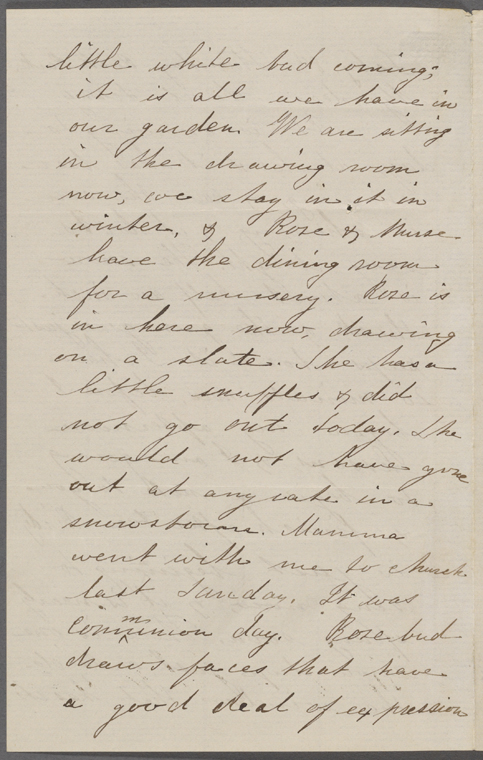 little white bud coming;
it is all we have in
our garden. We are sitting
in the drawing room
now, we stay in it in
winter, & Rose & Nurse
have the dining room
for a nursery. Rose is
in here now, drawing
on a slate. She has a
little snuffles & did
not go out today. She
would not have gone
out at any rate in a
snowstorm. Mamma
went with me to church
last Sunday. It was
communion day. Rosebud
draws faces that have
a good deal of expression